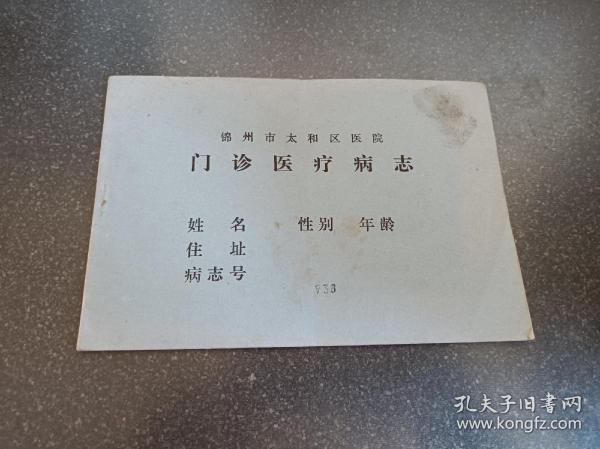 锦州市太和区医院
门诊医疗病志
姓名 性别 年龄
住址
病志号
936
孔夫子旧书网
www.kongfz.com